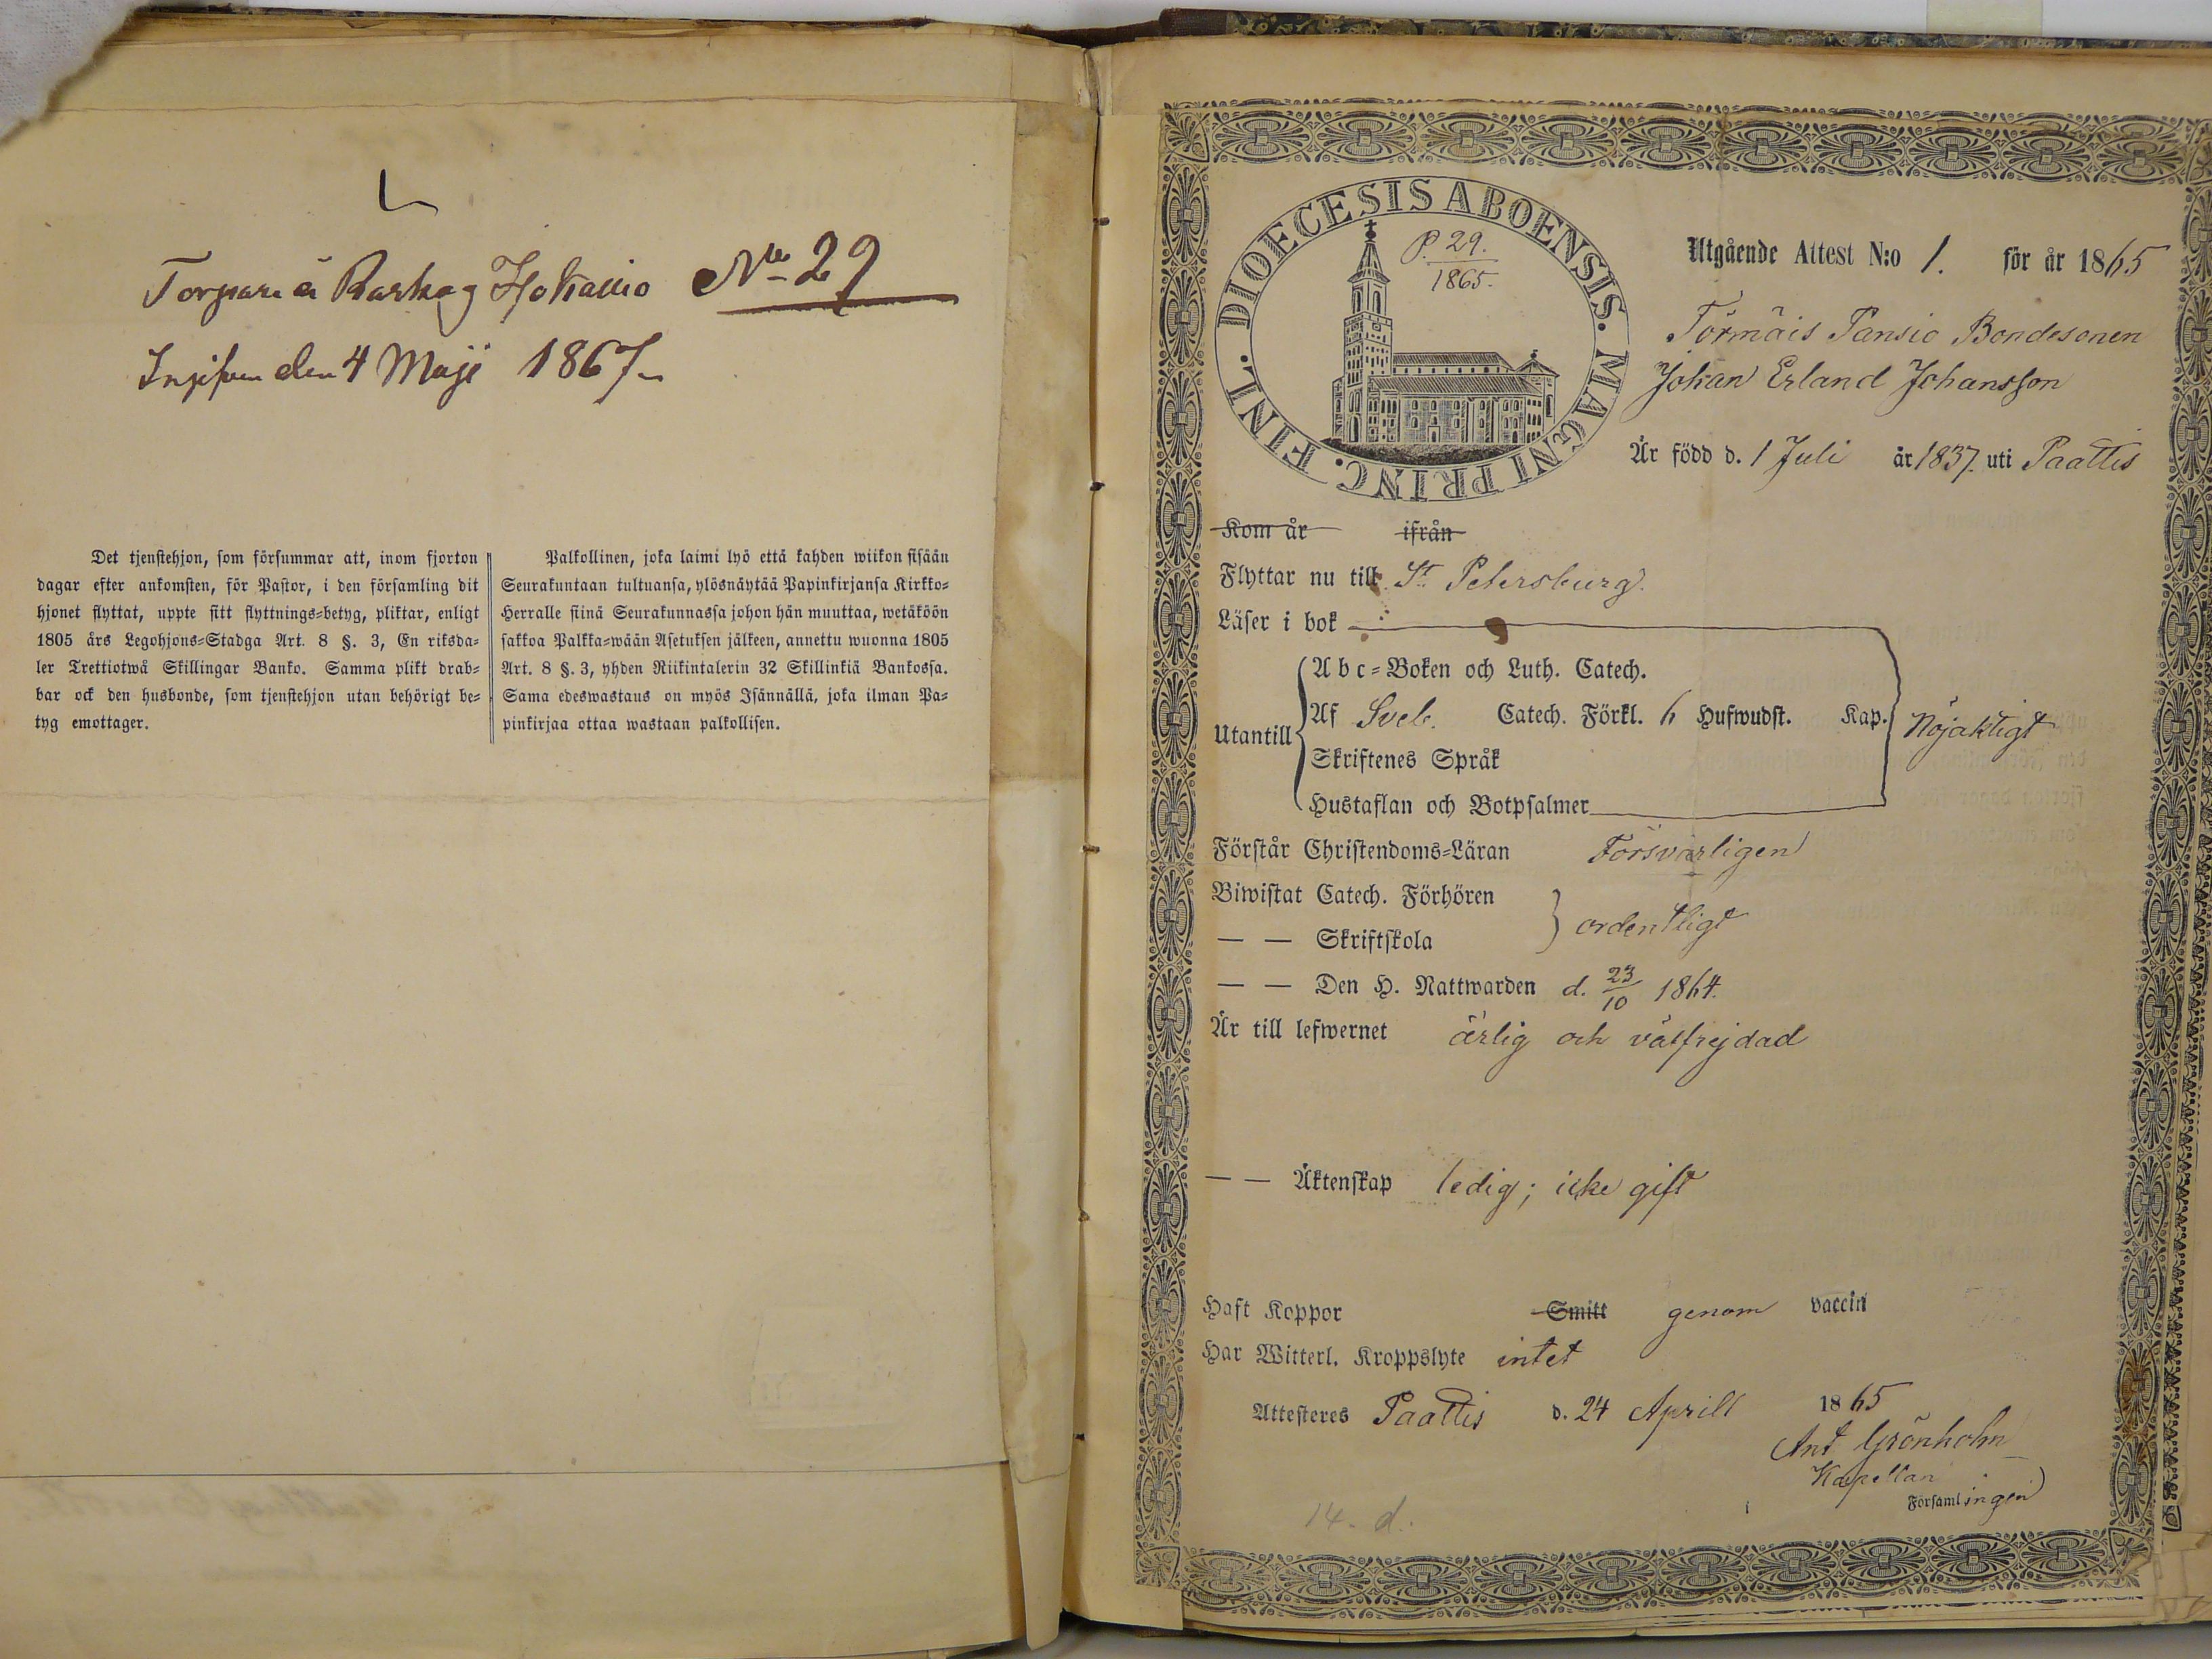 Torpare å Ruskog Hokamo No 29
Ingifven den 4 Maji 1867
Det tjenstehjon, som försummar att, inom fjorton
dagar efter ankomsten, för Pastor, i den församling dit
hjonet flyttat, uppte sitt flyttnings=betyg, pliktar, enligt
1805 års Legohjons=Stadga Art. 8 §. 3, En riksda=
ler Trettiotwå Skillingar Banko. Samma plikt drab=
bar ock den husbonde, som tjenstehjon utan behörigt be=
tyg emottager.
Palkollinen, joka laimi lyö että kahden wiikon sisään
Seurakuntaan tultuansa, ylösnäytää Papinkirjansa Kirkko=
Herralle siinä Seurakunnassa johon hän muuttaa, wetäköön
sakkoa Palkka=wään Asetuksen jälkeen, annettu wuonna 1805
Art. 8 §. 3, yhden Riikintalerin 32 Skillinkiä Bankossa.
Sama edeswastaus on myös Isännällä, joka ilman Pa=
pinkirjaa ottaa wastaan palkollisen.
DIOECESIS ABOENSIS. MAGNI PRINC. FINL.
P. 29.
1865.
Utgående Attest N:o 1. för år 1865
Törmäis Pansio Bondesonen
Johan Erland Johansson
Är född d. 1 Juli år 1837. uti Paattis
Kom år ifrån
Flyttar nu till St Petersburg.
Läser i bok
Utantill
Abc=Boken och Luth. Catech.
Af Sveb. Catech. Förkl. 6 Hufwudst. Kap.
Skriftenes Språk
Hustaflan och Botpsalmer
Nöjaktigt
Förstår Christendoms=Läran Försvarligen
Biwistat Catech. Förhören
— — Skriftskola
ordentligt
— — Den H. Nattwarden d. 23/10 1864.
Är till lefwernet ärlig och välfrejdad
— — Äktenskap ledig; icke gift
Haft Koppor Smitt genom vaccin
Har Witterl. Kroppslyte intet
Attesteres Paattis d. 24 Aprill 1865
Ant Grönholm
Kapellan
Församlingen
14. d.